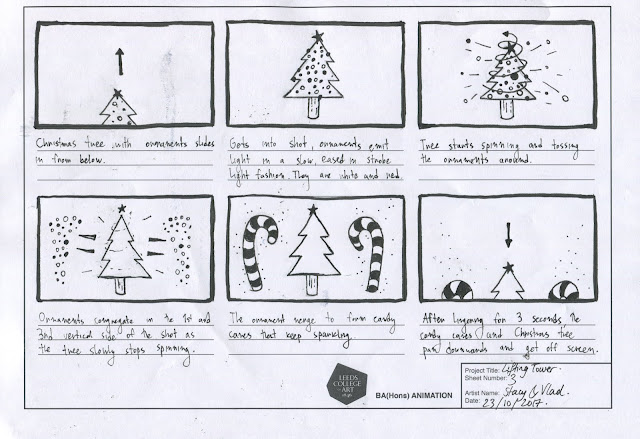 Christmas tree with ornaments slides
in from below.
Gets into shot, ornaments emit
light in a slow, eased in strobe
light fashion. They are white and red.
Tree starts spinning and tossing
the ornaments around.
Ornaments congregate in the 1st and
3rd vertical side of the shot as
the tree slowly stops spinning.
The ornament merge to form candy
canes that keep sparkling.
After lingering for 3 seconds the
candy canes and Christmas tree
pan downwards and get off screen.
LEEDS
COLLEGE
of ART
BA(Hons) ANIMATION
Project Title: Lifting Tower.
Sheet Number: 3
Artist Name: Stacy & Vlad.
Date: 23/10/2017.